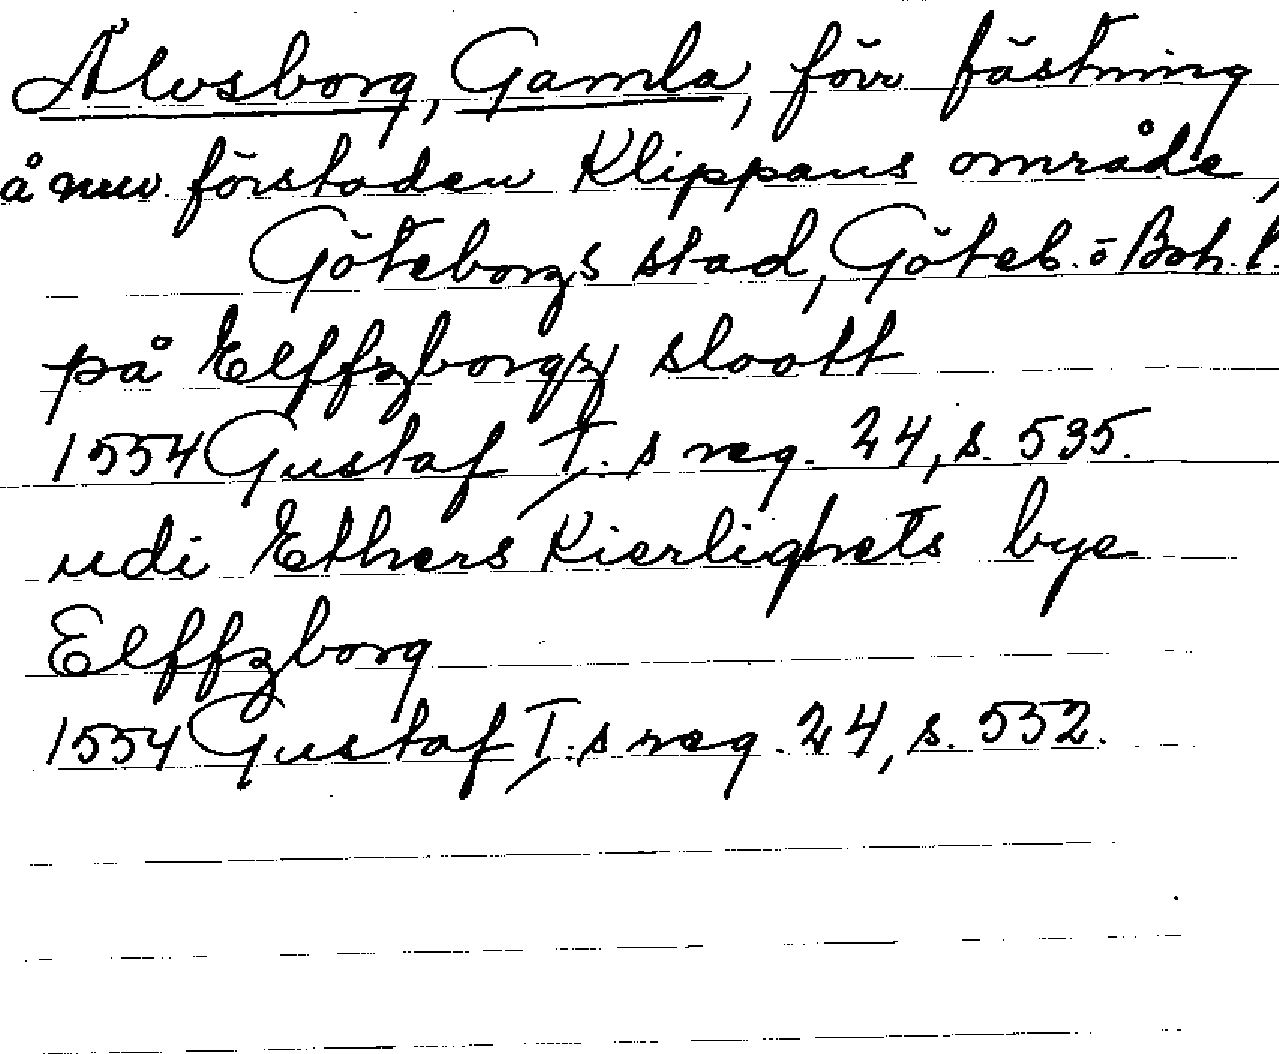 Älvsborg, Gamla, förv fästning
å nuv. förstaden Klippans område,
Göteborgs stad, Göteb. o Boh. l.
på Elffzborgz slott
1554 Gustaf I. s reg. 24, s. 535.
udi Ethers Kierlighets bye
Elffzborg
1554 Gustaf I. s reg. 24, s. 552.